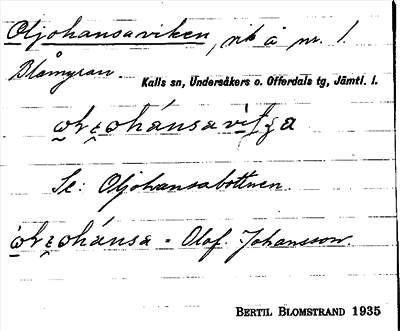 Oljohansaviken, vik å nr. 1.
Blåmyran.
Kalls sn, Undersåkers o. Offerdals tg, Jämtl. l.
Se: Oljohansabottnen.
= Olof Johansson.
BERTIL BLOMSTRAND 1935